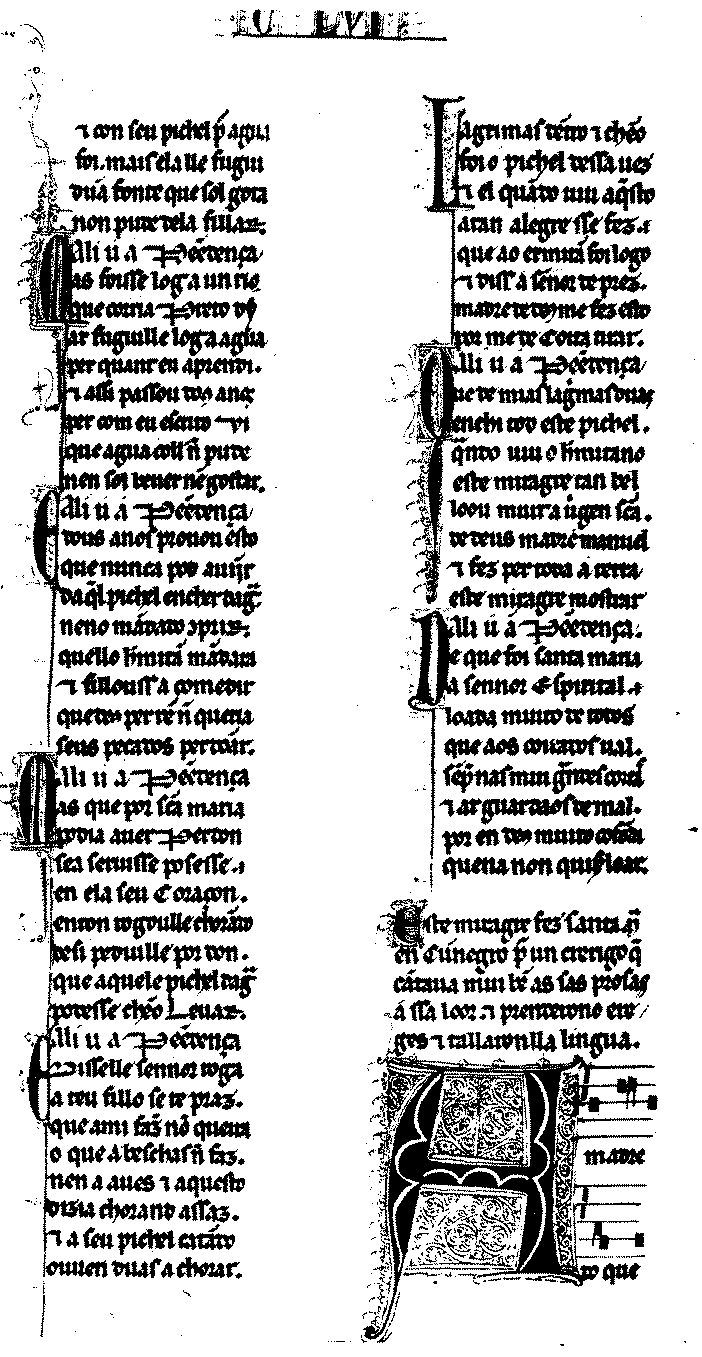 C LVI
⁊ con seu pichel p̃ agua
foi. mais ela lle fugiu
dũa fonte que sol gota
non pude dela fillar.
Ali u a Peẽtença
Mas foisse log a un rio
que corria Preto
ar fugiulle log a agua
per quant eu aprendi.
⁊ assi passou
per com eu escrito
que agua coll ñ pude
nen sol bever nẽ gostar.
Ali u á Peẽtença
E dous anos provou esto
que nunca pod avĩir
daq̃l pichel encher dag̃
neno mãdado
quello hermitã mãdara
⁊ fillouss a comedir
que per rẽ ñ queria
seus pecados perdõar.
Ali u á Peẽtença
Mas que por sc̃a maria
podia aver Perdon
sea servisse posesse
en ela seu Coraçon.
enton rogoulle chorãdo
desi pediulle por don.
que aquele pichel dag̃
podesse chẽo Levar.
Ali u a Peẽtença
E Disselle sennor roga
a teu fillo se te praz.
que ami faz nõ queira
o que abeschas ñ faz.
nen a aves ⁊ aquesto
dizia chorand assaz.
⁊ a seu pichel catãdo
ouveu duas a chorar.
Lagrimas dẽtro ⁊ chẽo
foi o pichel dessa vez
⁊ el quãdo viu aq̃sto
atan alegre sse fez.
que ao ermitã foi logo
⁊ diss a sẽnor de prez.
madre de me fez esto
por me de Coita tirar.
Ali u a Peẽtença
Que de mias lag̃mas duas
enchi tod este pichel.
q̃ndo viu o hermitano
este miragre tan bel
loou muit a uirgen sc̃a.
de deus madrẽ manuel
⁊ fez per toda a terra
este miragre mostrar
Ali u á Peẽtença.
De que foi santa maria
a sennor Espirital.
loada muito de todos
que aos coitados val.
⁊ ar guardaos de mal.
por en muito
quena non quiser loar.
Este miragre fez santa
en Cũnegro p̃ un crerigo q̃
cãtava mui bẽ as sas prosas
a ssa loor. ⁊ prenderono ere
ges ⁊ tallaronlla lingua.
A madre
do que